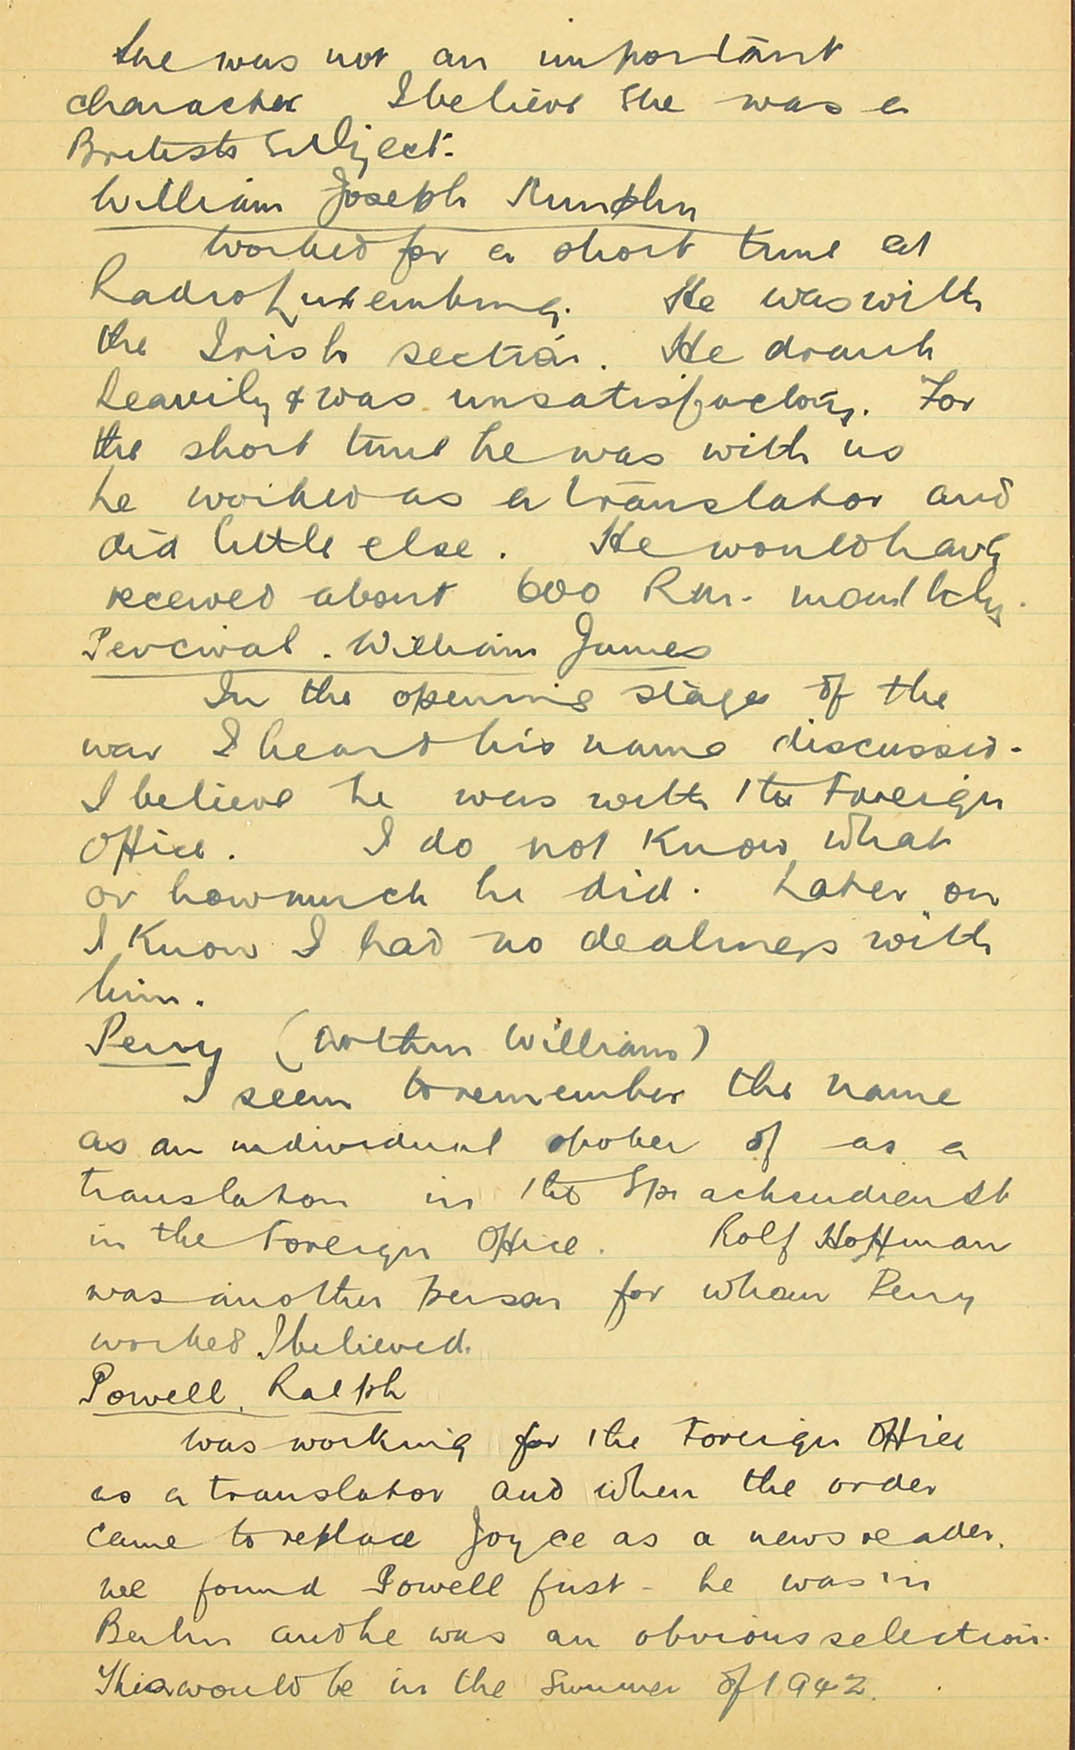 She was not an important
character I believe she was a
British Subject.
William Joseph Murphy
worked for a short time at
Radio Luxembourg. He was with
the Irish section. He drank
heavily & was unsatisfactory. For
the short time he was with us
he worked as a translator and
did little else. He would have
received about 600 Rm. monthly.
Percival. William James
In the opening stages of the
war I heard his name discussed.
I believe he was with the Foreign
Office. I do not know what
or how much he did. Later on
I know I had no dealings with
him.
Perry (Arthur William)
I seem to remember the name
as an individual spoken of as a
translator in the Sprachendienst
in the Foreign Office. Rolf Hoffman
was another person for whom Perry
worked I believed.
Powell, Ralph
was working for the Foreign Office
as a translator and when the order
came to replace Joyce as a news reader,
we found Powell first - he was in
Berlin and he was an obvious selection.
This would be in the Summer of 1942.